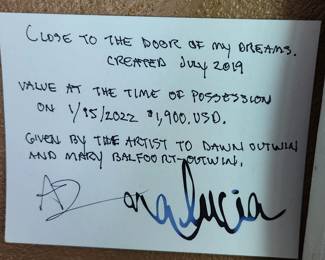 CLOSE TO THE DOOR OF MY DREAMS.
CREATED JULY 2019
VALUE AT THE TIME OF POSSESSION
ON 1/15/2022 $1,900.USD.
GIVEN BY THE ARTIST TO DAWN OUTWIN
AND MARY BALFOORT-OUTWIN.
Ana Lucia